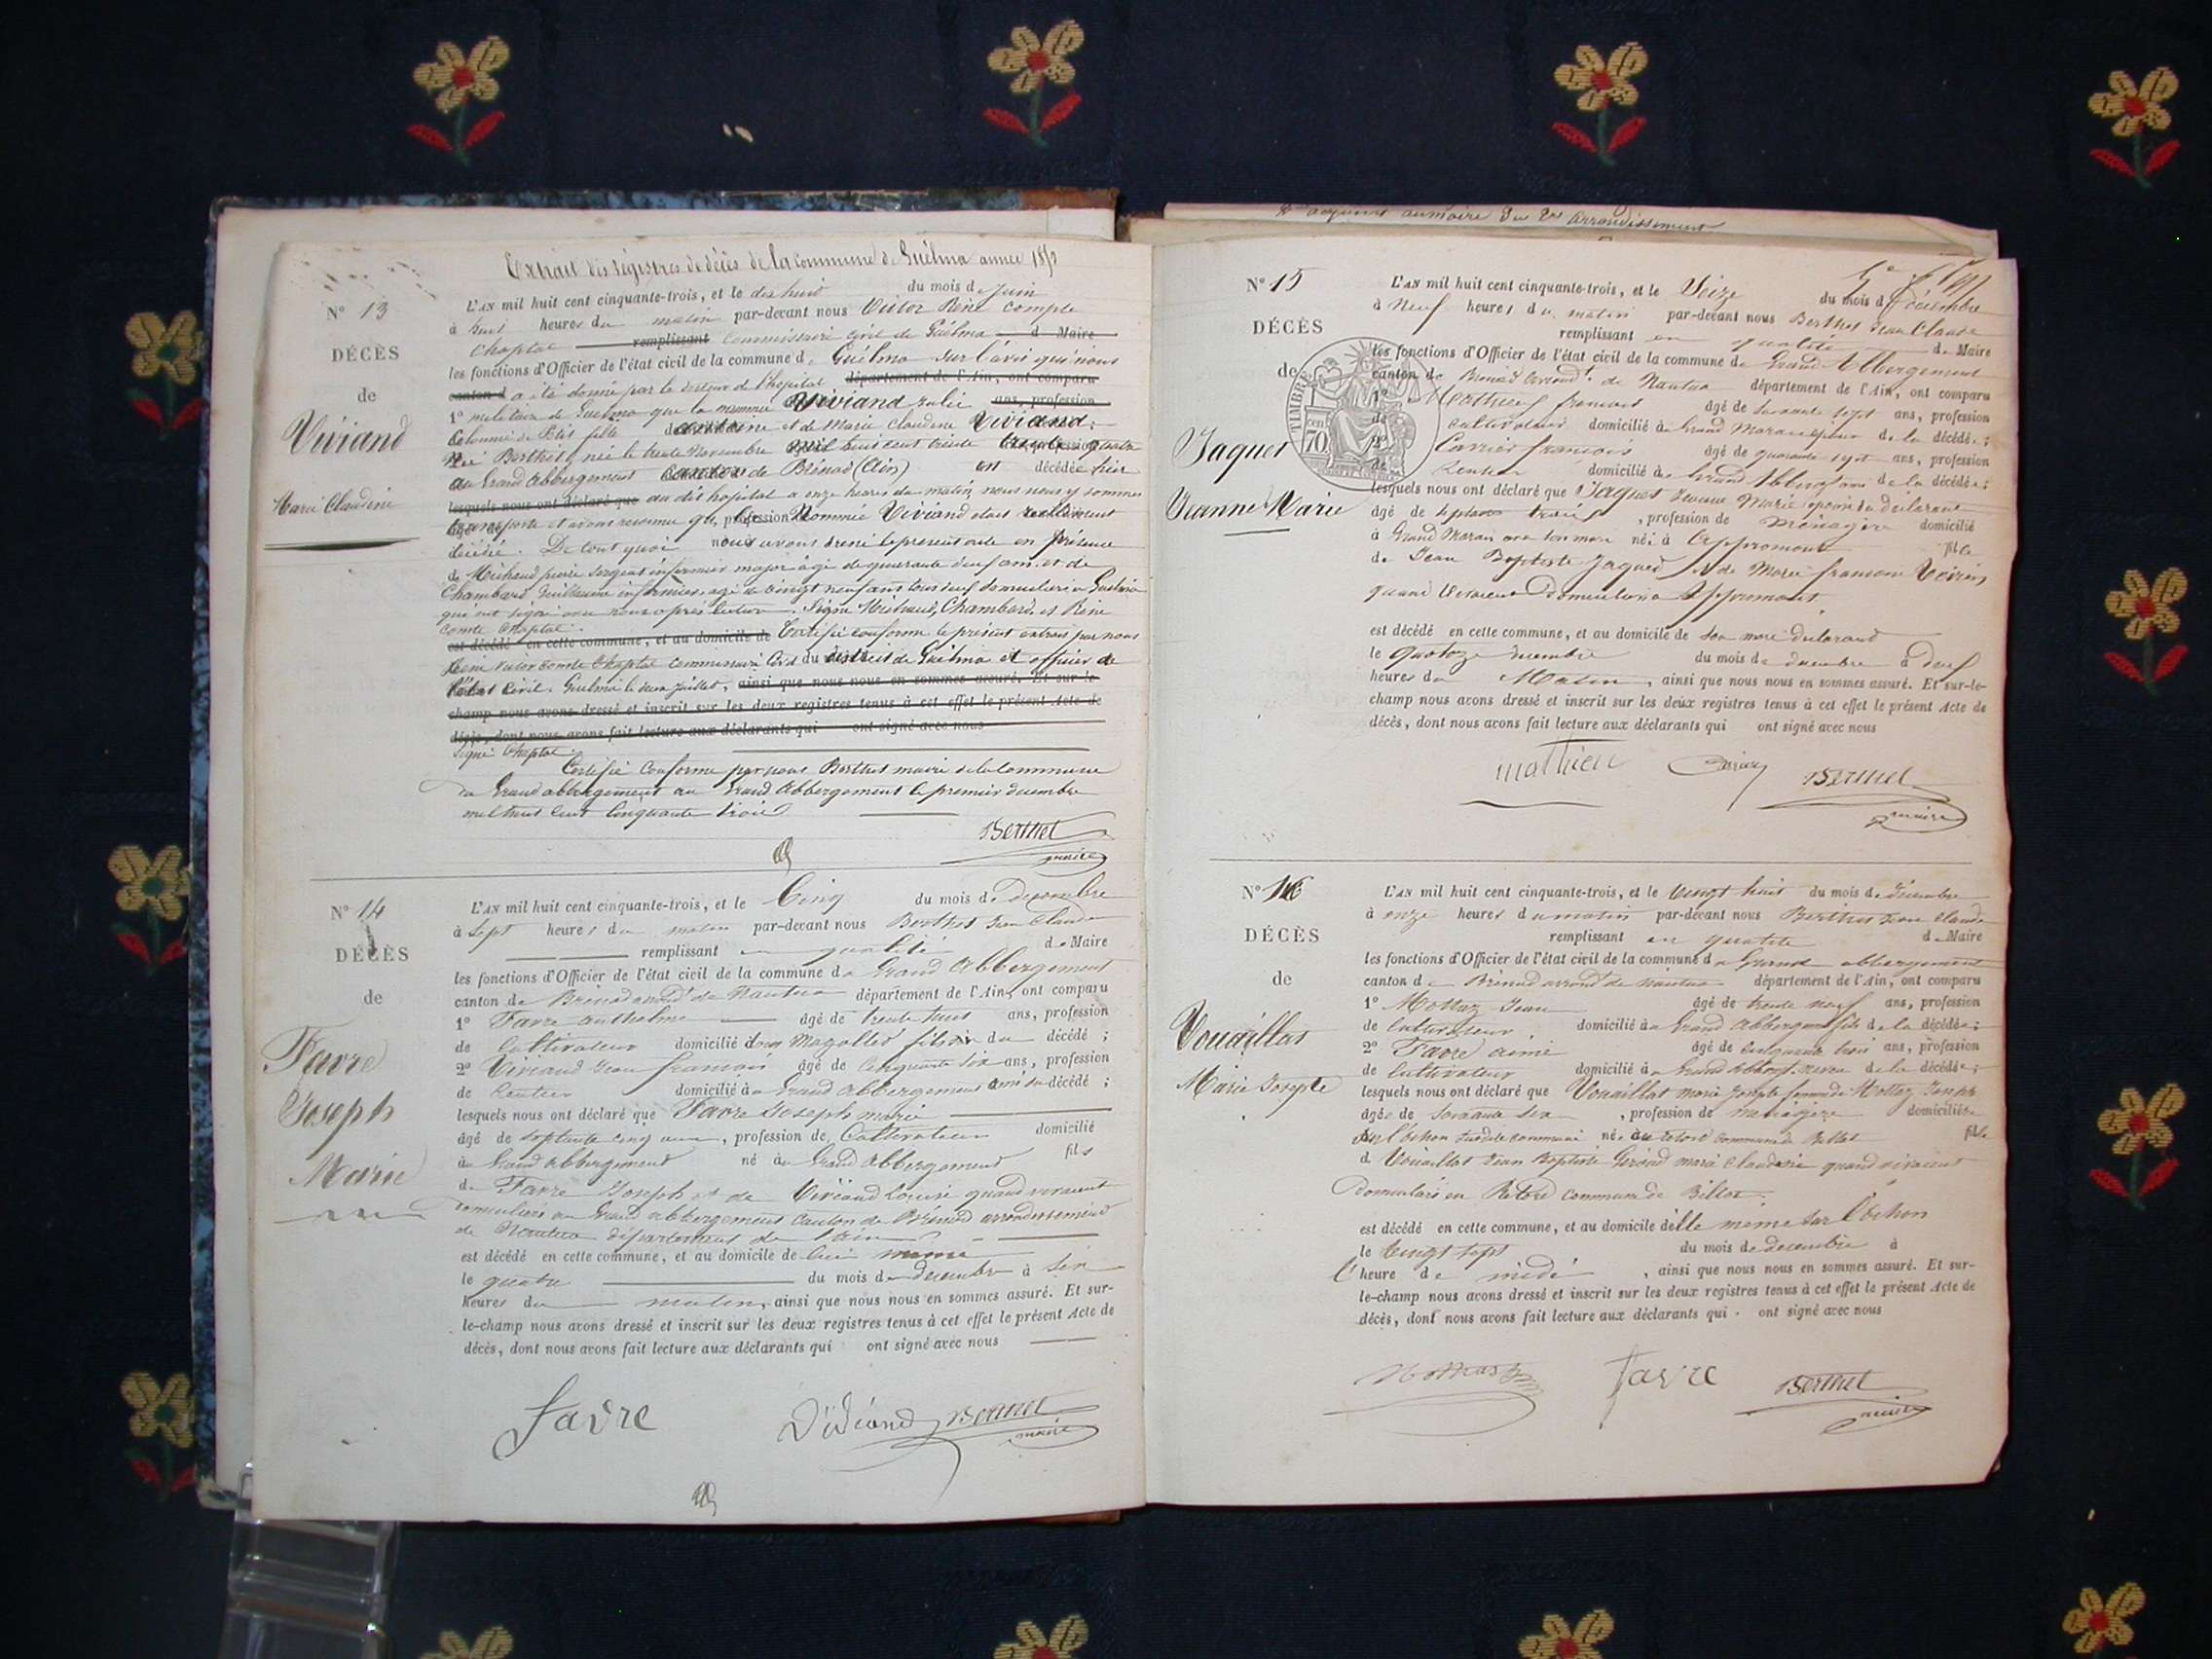 Extrait des régistres de décès de la commune de Guélma année 18
N° 13
DÉCÈS
de
Viviand
Marie Claudine
L'AN mil huit cent cinquante-trois, et le dix huit du mois de Juin
à huit heures du matin par-devant nous Victor René comte
Chaptal remplissant commissaire civil de Guélma d Maire
les fonctions d'Officier de l'état civil de la commune de Guélma sur l'avis qui nous
canton d a été donné par le directeur de l'hopital département de l'Ain, ont comparu
1° militaire de Guelma que la nommée Viviand Julie ans, profession
fille de antoine et de Marie Claudine Viviand
née Berthet, née le trente Novembre mil huit cent trente quatre
au Grand abbergement Canton de Brénod (Ain) est décédée hier
lesquels nous ont déclaré que au dit hopital a onze heures du matin, nous nous y sommes
transporté et avons reconnu que la nommée Viviand était réellement
décédée. De tout quoi nous avons dressé le présent acte en présence
de Michaud pierre sergent infirmier major âgé de quarante deux ans et de
Chambard Guillaume infirmier, agé de vingt neuf ans tous deux domiciliés a Guélma
qui ont signé avec nous après lecture. Signé Michaud, Chambard, et René
comte Chaptal.
est décédé en cette commune, et au domicile de Certifié conforme le présent extrait par nous
René victor comte Chaptal commissaire Civil du district de Guélma et officier de
l'état Civil. Guelma le deux Juillet, ainsi que nous nous en sommes assuré. Et sur-le-
champ nous avons dressé et inscrit sur les deux registres tenus à cet effet le présent Acte de
décès, dont nous avons fait lecture aux déclarants qui ont signé avec nous
Signé Chaptal.
Certifié Conforme par nous Berthet maire de la Commune
du Grand abbergement au Grand Abbergement le premier decembre
mil huit cent Cinquante trois
Berthet
maire
N° 14
DÉCÈS
de
Favre
Joseph
Marie
L'AN mil huit cent cinquante-trois, et le Cinq du mois de Decembre
à Sept heures du matin par-devant nous Berthet Jean Claude
remplissant en qualité de Maire
les fonctions d'Officier de l'état civil de la commune de Grand Abbergement
canton de Brénod arrond.t de Nantua département de l'Ain, ont comparu
1° Favre anthelme âgé de trente huit ans, profession
de Cultivateur domicilié fils du décédé ;
2° Viviand Jean françois âgé de Cinquante six ans, profession
de Rentier domicilié à Grand Abbergement ami du décédé ;
lesquels nous ont déclaré que Favre Joseph marie
âgé de septante cinq ans, profession de Cultivateur domicilié
à Grand abbergement né à Grand Abbergement fils
de Favre Joseph et de Viviand Louise quand vivaient
domiciliés au Grand abbergement canton de Brénod arrondissement
de Nantua département de l'ain
est décédé en cette commune, et au domicile de lui même
le quatre du mois de decembre à six
heures du matin, ainsi que nous nous en sommes assuré. Et sur-
le-champ nous avons dressé et inscrit sur les deux registres tenus à cet effet le présent Acte de
décès, dont nous avons fait lecture aux déclarants qui ont signé avec nous
Favre Viviand Berthet
maire
adjoint au maire du arrondissement
N° 15
DÉCÈS
de
Jaquet
Jeanne Marie
TIMBRE
70
L'AN mil huit cent cinquante-trois, et le Seize du mois de décembre
à Neuf heures du matin par-devant nous Berthet Jean Claude
remplissant en qualité de Maire
les fonctions d'Officier de l'état civil de la commune de Grand Abbergement
canton de Brénod arrond.t de Nantua département de l'Ain, ont comparu
1° Mathieu francois âgé de soixante sept ans, profession
de cultivateur domicilié à Grand Marais époux de la décédée ;
2° Carrier françois âgé de quarante sept ans, profession
de Rentier domicilié à Grand Abbergement de la décédée ;
lesquels nous ont déclaré que Jaquet Jeanne Marie épouse du déclarant
âgé de septante trois, profession de Ménagère domicilié
à Grand Marais avec son mari né à Appromont fille
de Jean Baptiste Jaquet et de Marie francoise
quand vivaient domiciliés a Appromont
est décédé en cette commune, et au domicile de son mari declarant
le Quatorze decembre du mois de decembre à Neuf
heures du Matin, ainsi que nous nous en sommes assuré. Et sur-le-
champ nous avons dressé et inscrit sur les deux registres tenus à cet effet le présent Acte de
décès, dont nous avons fait lecture aux déclarants qui ont signé avec nous
mathieu Carrier Berthet
maire
N° 16
DÉCÈS
de
Vouaillat
Marie Josepte
L'AN mil huit cent cinquante-trois, et le vingt huit du mois de décembre
à onze heures du matin par-devant nous Berthet Jean Claude
remplissant en qualité de Maire
les fonctions d'Officier de l'état civil de la commune de Grand abbergement
canton de Brénod arrond.t de nantua département de l'Ain, ont comparu
1° Mottaz Jean âgé de trente neuf ans, profession
de Cultivateur domicilié à Grand Abbergement fils de la décédée ;
2° Favre aimé âgé de cinquante trois ans, profession
de Cultivateur domicilié à Grand Abberg.t neveu de la décédée ;
lesquels nous ont déclaré que Vouaillat marie Josepte femme de Mottaz Joseph
âgée de soixante six, profession de menagère domiciliée
sur l'ochon susdite commune née au Retord commune de Billiat fille
d Vouaillat Jean Baptiste Girod marie Claudine quand vivaient
domiciliés en Retord commune de Billiat.
est décédé en cette commune, et au domicile d'elle même sur l'ochon
le vingt sept du mois de decembre à
l'heure de midi, ainsi que nous nous en sommes assuré. Et sur-
le-champ nous avons dressé et inscrit sur les deux registres tenus à cet effet le présent Acte de
décès, dont nous avons fait lecture aux déclarants qui ont signé avec nous
Mottaz Favre Berthet
maire